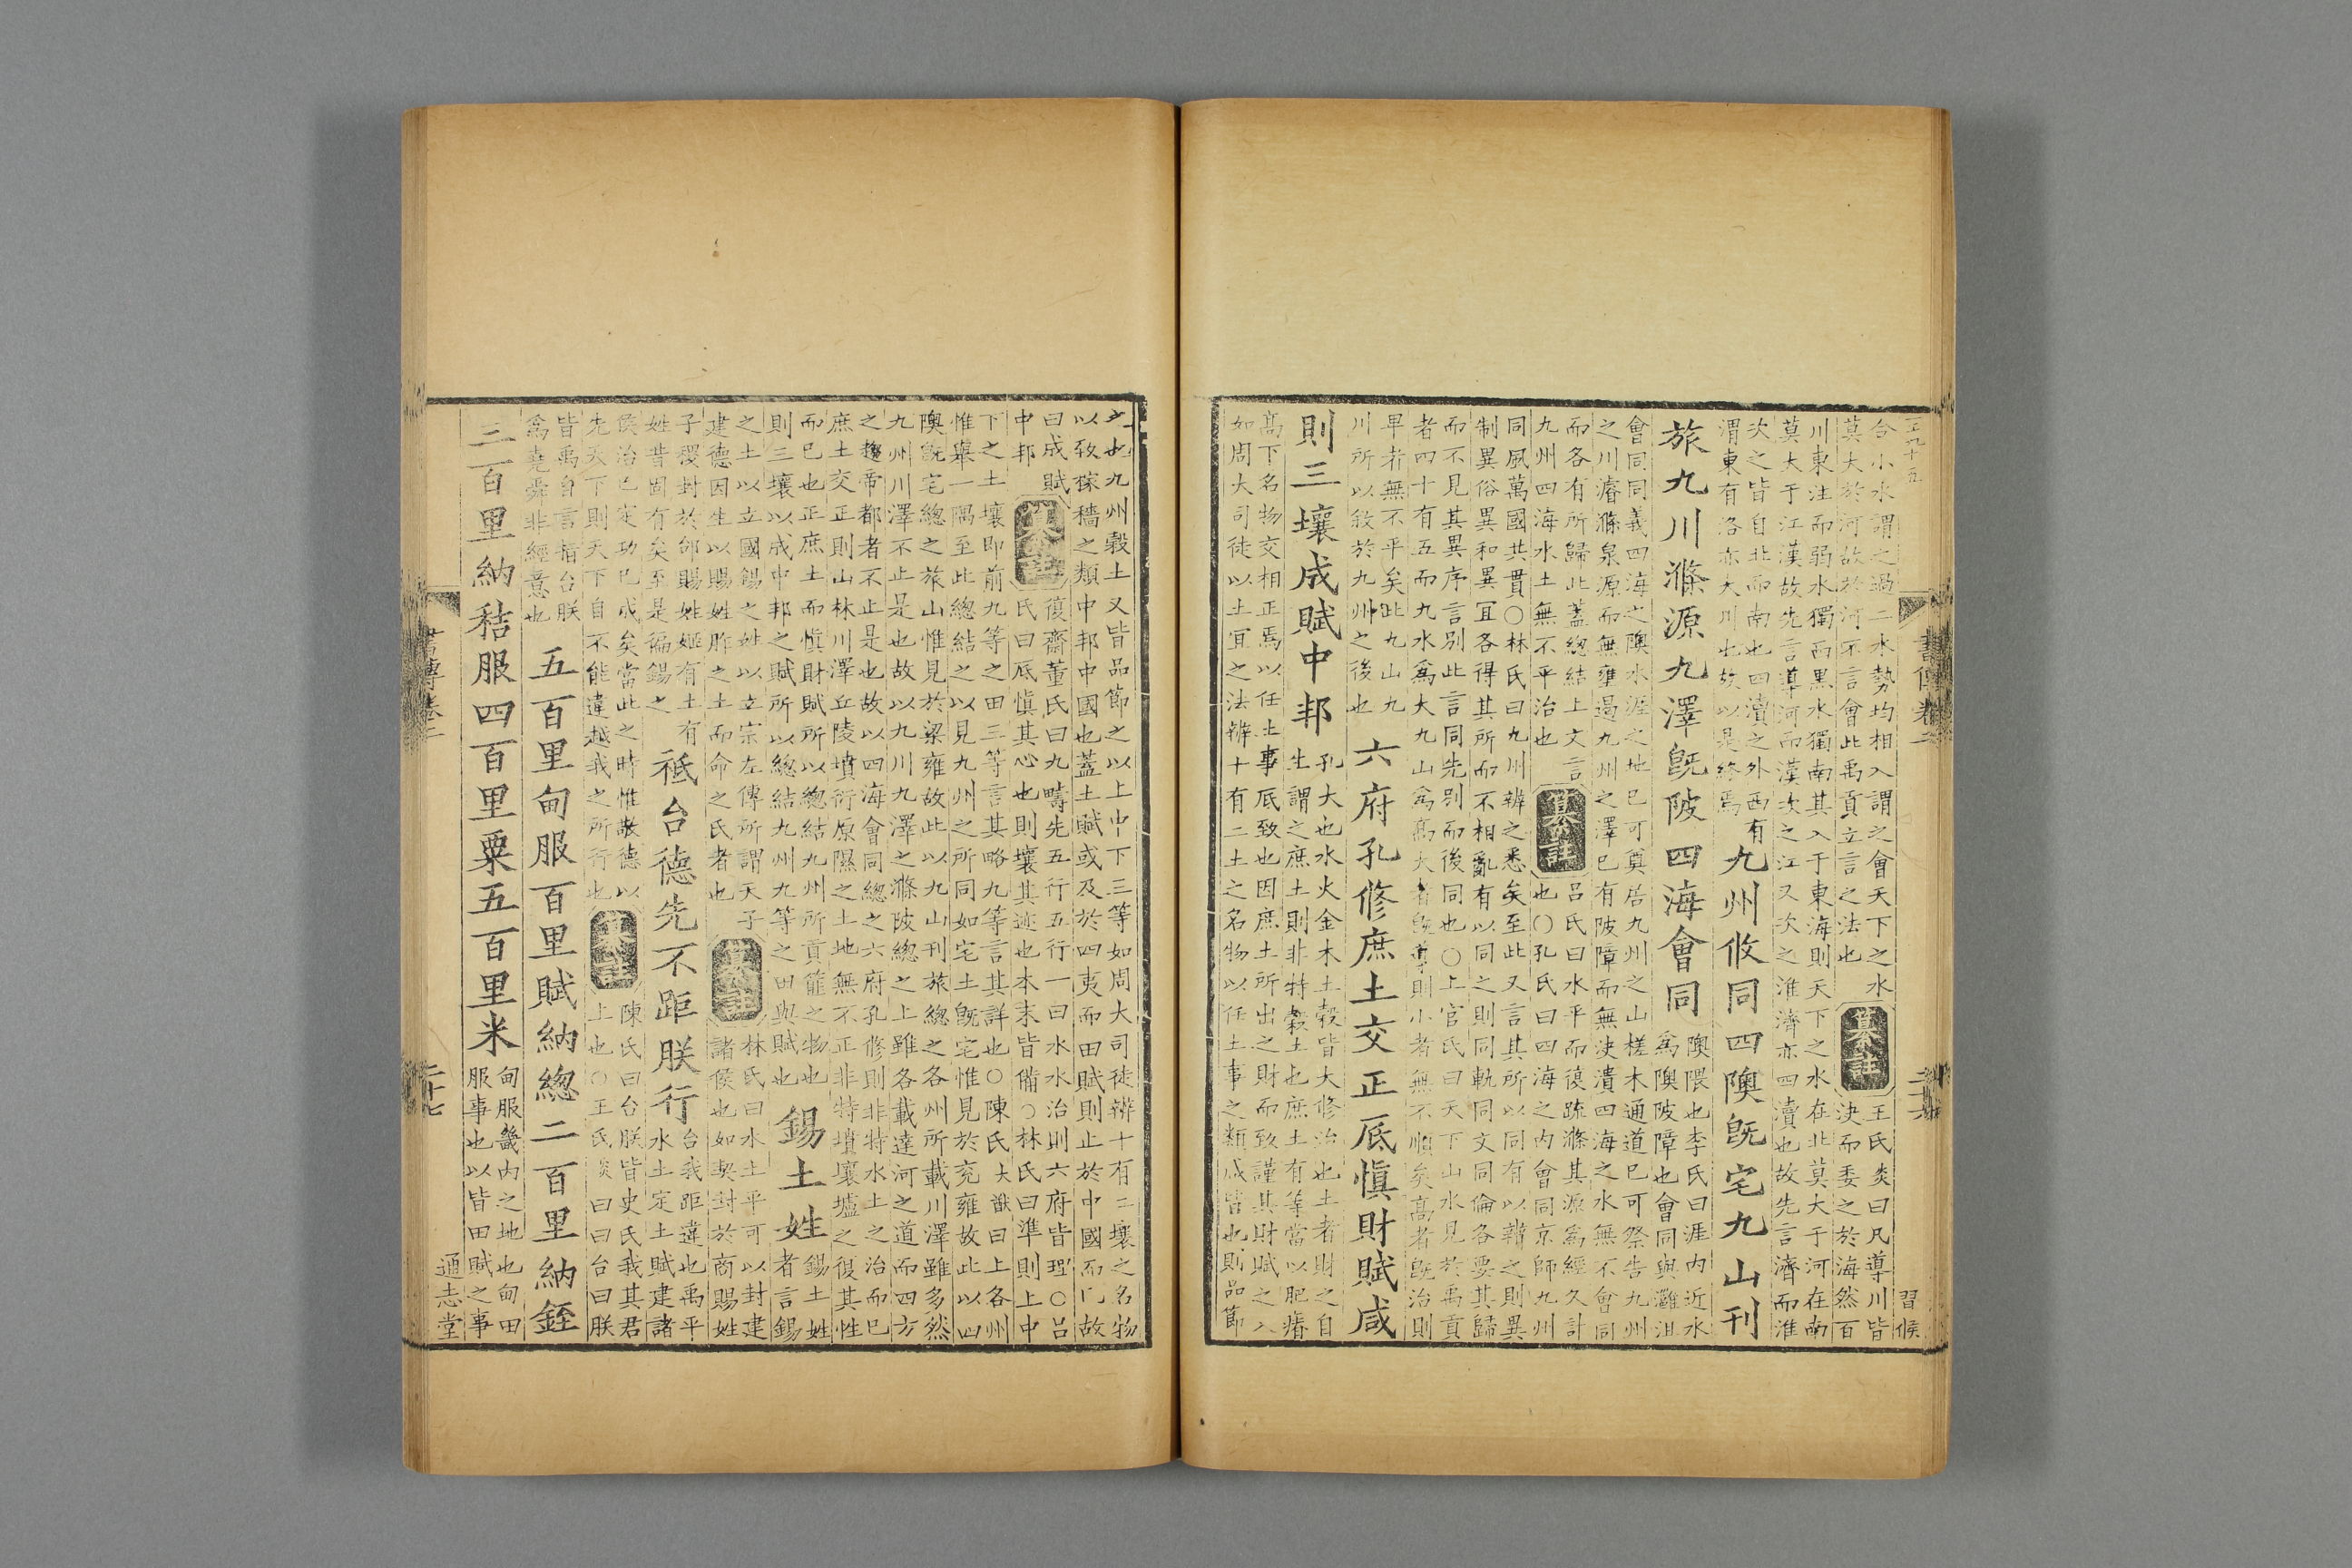 五九十五
書傳卷二
二十六
習候
合小水謂之過二水勢均相入謂之會天下之水
莫大於河故於河不言會此禹貢立言之法也
纂註
王氏炎曰凡導川皆
決而委之於海然百
川東注而弱水獨西黑水獨南其入于東海則天下之水在北莫大于河在南
莫大于江漢故先言導河而漢次之江又次之淮濟亦四瀆也故先言濟而淮
次之皆自北而南也四瀆之外西有
渭東有洛亦大川也故以是終焉
九州攸同四隩旣宅九山刊
旅九川滌源九澤旣陂四海會同
隩隈也李氏曰涯内近水
為隩陂障也會同與灉沮
會同同義四海之隩水涯之地已可奠居九州之山槎木通道已可祭告九州
之川濬滌泉源而無壅遏九州之澤已有陂障而無決潰四海之水無不會同
而各有所歸此蓋總結上文言
九州四海水土無不平治也
纂註
呂氏曰水平而復疏滌其源為經久計
也〇孔氏曰四海之内會同京師九州
同風萬國共貫〇林氏曰九州辨之悉矣至此又言其所以同有以辨之則異
制異俗異和異宜各得其所而不相亂有以同之則同軌同文同倫各要其歸
而不見其異序言別此言同先別而後同也〇上官氏曰天下山水見於禹貢
者四十有五而九水為大九山為高大者旣導則小者無不順矣高者旣治則
卑者無不平矣此九山九
川所以敘於九州之後也
六府孔修庶土交正厎愼財賦咸
則三壤成賦中邦
孔大也水火金木土穀皆大修治也土者財之自
生謂之庶土則非特穀土也庶土有等當以肥瘠
高下名物交相正焉以任土事厎致也因庶土所出之財而致謹其財賦之入
如周大司徒以土宜之法辨十有二土之名物以任土事之類咸皆也則品節
之也九州穀土又皆品節之以上中下三等如周大司徒辨十有二壤之名物
以致稼穡之類中邦中國也蓋土賦或及於四夷而田賦則止於中國而已故
曰成賦
中邦
纂註
復齋董氏曰九疇先五行五行一曰水水治則六府皆理〇呂
氏曰厎愼其心也則壤其迹也本末皆備〇林氏曰準則上中
下之土壤即前九等之田三等言其略九等言其詳也〇陳氏大猷曰上各州
惟舉一隅至此總結之以見九州之所同如宅土旣宅惟見於兗雍故此以四
隩旣宅總之旅山惟見於梁雍故此以九山刊旅總之各州所載川澤雖多然
九州川澤不止是也故以九川九澤之滌陂總之上雖各載達河之道而四方
之趨帝都者不止是也故以四海會同總之六府孔修則非特水土之治而已
庶土交正則山林川澤丘陵墳衍原隰之土地無不正非特墳壤壚之復其性
而已也正庶土而愼財賦所以總結九州所貢篚之物也
則三壤以成中邦之賦所以總結九州九等之田與賦也
錫土姓
錫土姓
者言錫
之土以立國錫之姓以立宗左傳所謂天子
建德因生以賜姓胙之土而命之氏者也
纂註
林氏曰水土平可以封建
諸侯也如契封於商賜姓
子稷封於邰賜姓姬有土有
姓昔固有矣至是徧錫之
祗台德先不距朕行
台我距違也禹平
水土定土賦建諸
侯治已定功已成矣當此之時惟敬德以
先天下則天下自不能違越我之所行也
纂註
陳氏曰台朕皆史氏我其君
上也〇王氏炎曰曰台曰朕
皆禹自言指台朕
為堯舜非經意也
五百里甸服百里賦納總二百里納銍
三百里納秸服四百里粟五百里米
甸服畿内之地也甸田
服事也以皆田賦之事
書傳卷二
二十七
通志堂